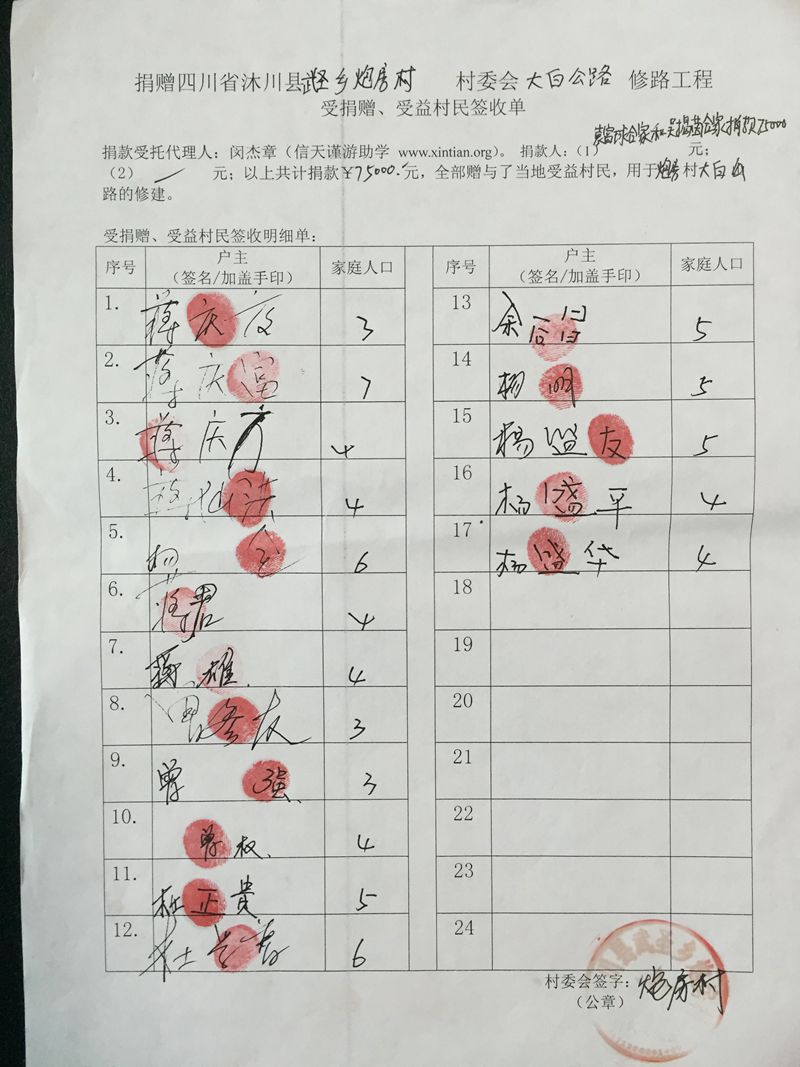 捐赠四川省沐川县武圣乡炮房村 村委会 大白公路 修路工程
受捐赠、受益村民签收单
捐款受托代理人：闵杰章（信天谨游助学 www.xintian.org）。 捐款人：（1） 全家和 全家捐款75000 元；
（2） 元；以上共计捐款￥75000.元，全部赠与了当地受益村民，用于炮房村大白公
路的修建。
受捐赠、受益村民签收明细单：
序号 户主（签名/加盖手印） 家庭人口 序号 户主（签名/加盖手印） 家庭人口
1. 蒋庆 3 13 余 5
2. 蒋庆富 7 14 杨明 5
3. 蒋庆方 4 15 杨盛友 5
4. 4 16 杨盛平 4
5. 6 17 杨盛华 4
6. 蒋君 4 18
7. 蒋雄 4 19
8. 友 3 20
9. 曾强 3 21
10. 曾权 4 22
11. 杜正贵 5 23
12. 6 24
村委会签字：炮房村
（公章）